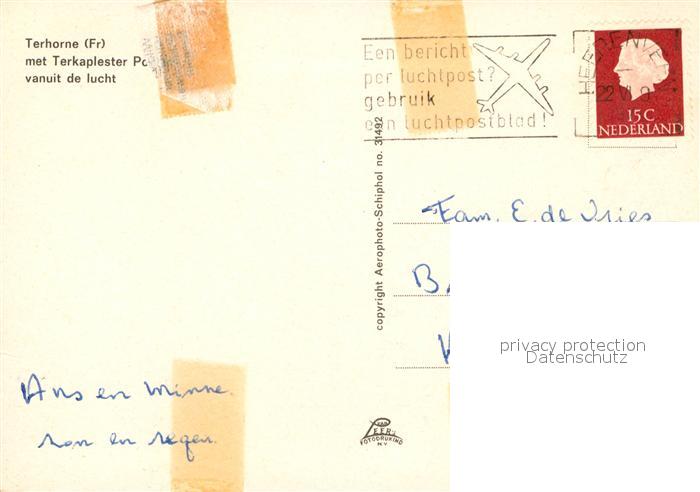 Terhorne (Fr)
met Terkaplester Po
vanuit de lucht
Een bericht
per luchtpost?
gebruik
een luchtpostblad!
HEERENVEEN
22 VI
15C
NEDERLAND
copyright Aerophoto-Schiphol no. 31492
Fam. E. de Vries
B
privacy protection
Datenschutz
Ans en Minne.
zon en regen.
VAN
LEER'S
FOTODRUKIND
N.V.